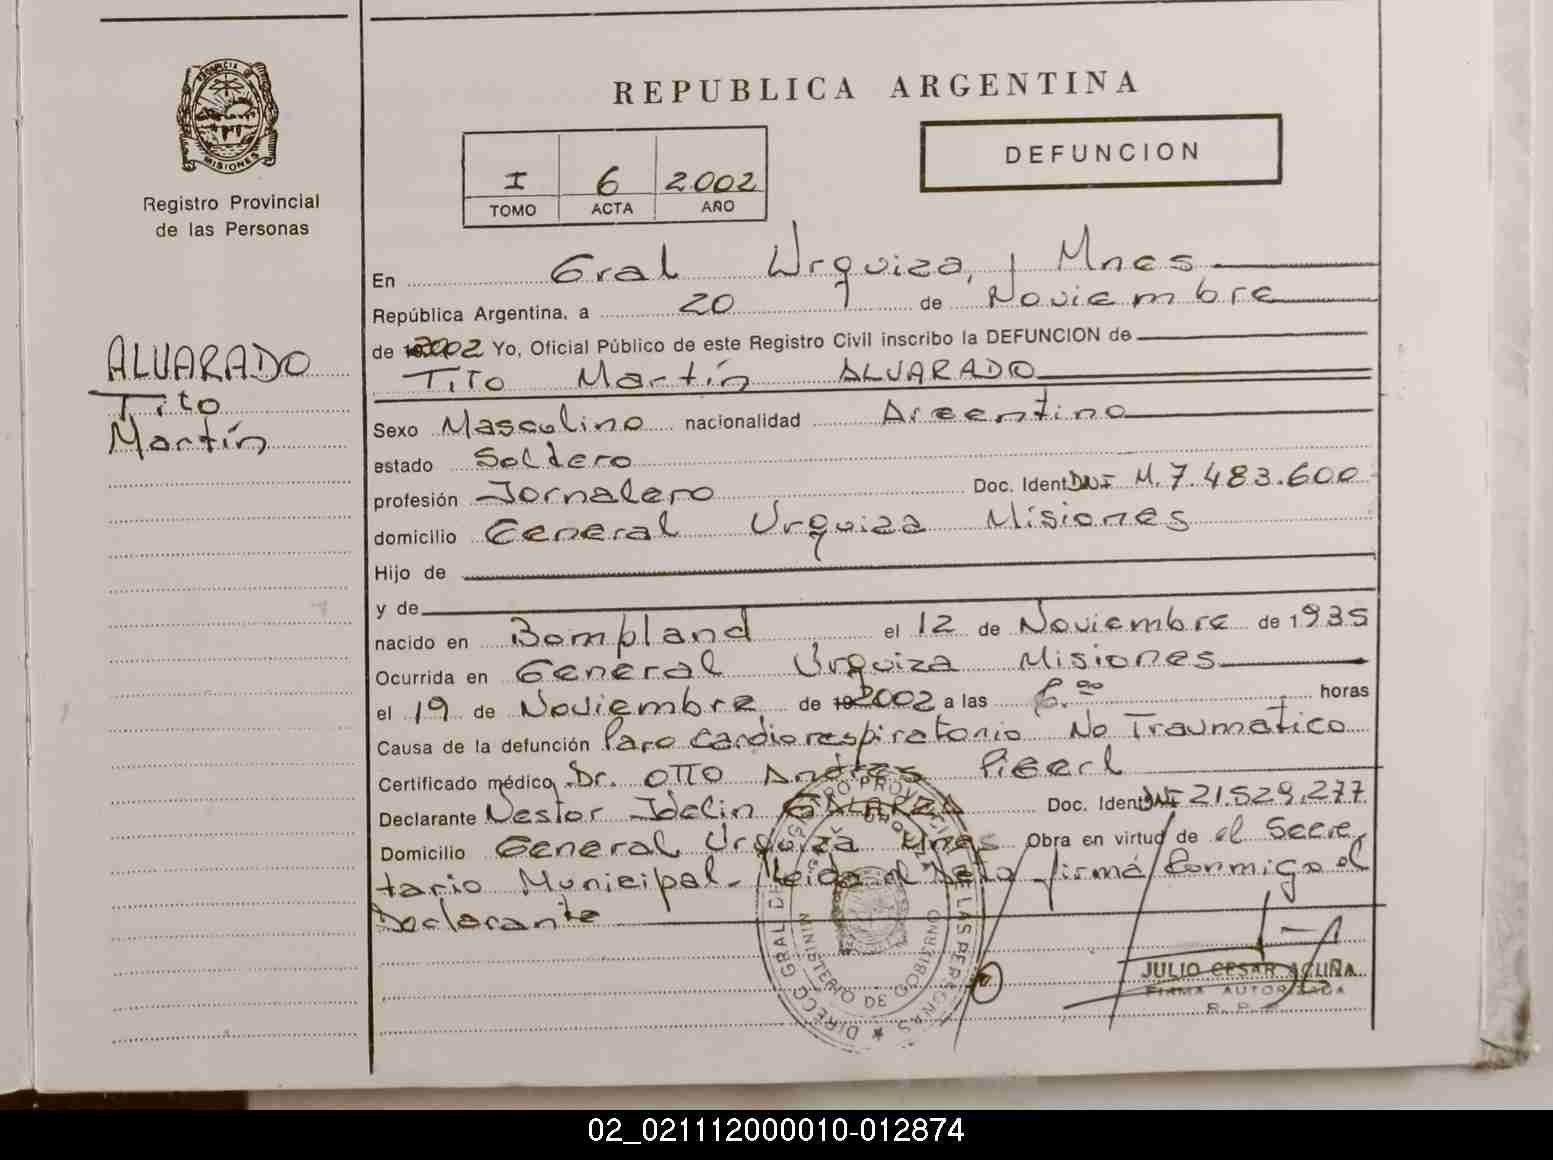 REPUBLICA ARGENTINA
PROVINCIA DE
MISIONES
Registro Provincial
de las Personas
I 6 2.002
TOMO ACTA AÑO
DEFUNCION
ALVARADO
Tito
Martín
En Gral Urquiza, Mnes
República Argentina, a 20 de Noviembre
de 2002 Yo, Oficial Público de este Registro Civil inscribo la DEFUNCION de
Tito Martín ALVARADO
Sexo Masculino nacionalidad Argentino
estado Soltero
profesión Jornalero Doc. Ident. DNI M. 7.483.600
domicilio General Urquiza Misiones
Hijo de
y de
nacido en Bompland el 12 de Noviembre de 1935
Ocurrida en General Urquiza Misiones
el 19 de Noviembre de 2002 a las 6.00 horas
Causa de la defunción Paro cardiorespiratorio No Traumatico
Certificado médico Dr. OTTO Andres
Declarante Nestor GALARZA Doc. Ident. DNI 21.529.277
Domicilio General Urquiza Mnes Obra en virtud de el Secre
tario Municipal- lleida el Acta firmá conmigo el
Declarante
DIRECC. GRAL. DEL REGISTRO PROVINCIAL DE LAS PERSONAS
MINISTERIO DE GOBIERNO
JULIO CESAR ACUÑA
FIRMA AUTORIZADA
R. P. P.
02_021112000010-012874